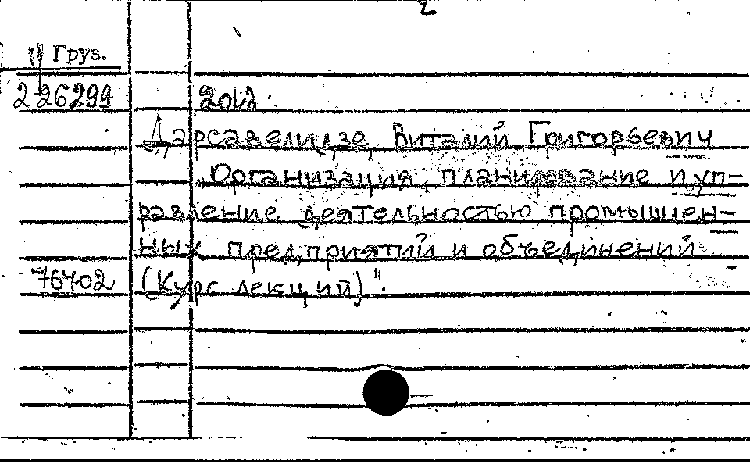 2
Груз.
226299
Дарсавелидзе, Виталий Григорьевич
Организация, планирование и уп-
равление деятельностью промышлен-
ных предприятий и объединений
76402 (Курс лекций)".